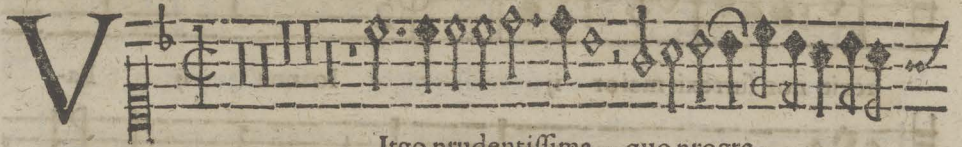 V
Irgo prudentiſſima quo progre